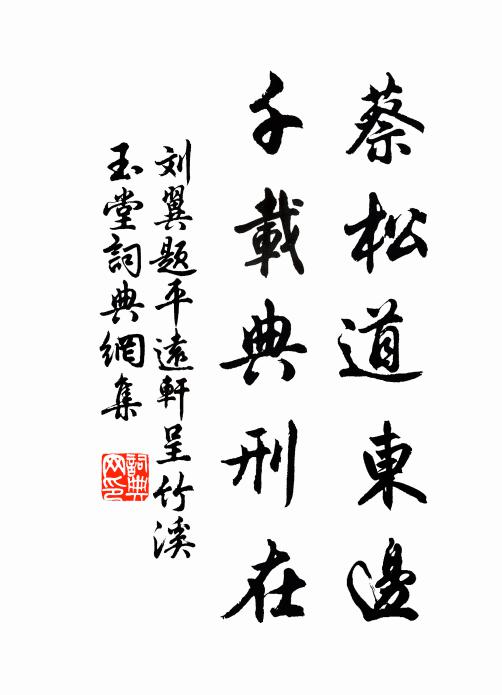 蔡松道東邊
千載典刑在
刘翼题平遠軒呈竹溪
玉堂詞典網集
詞典网印